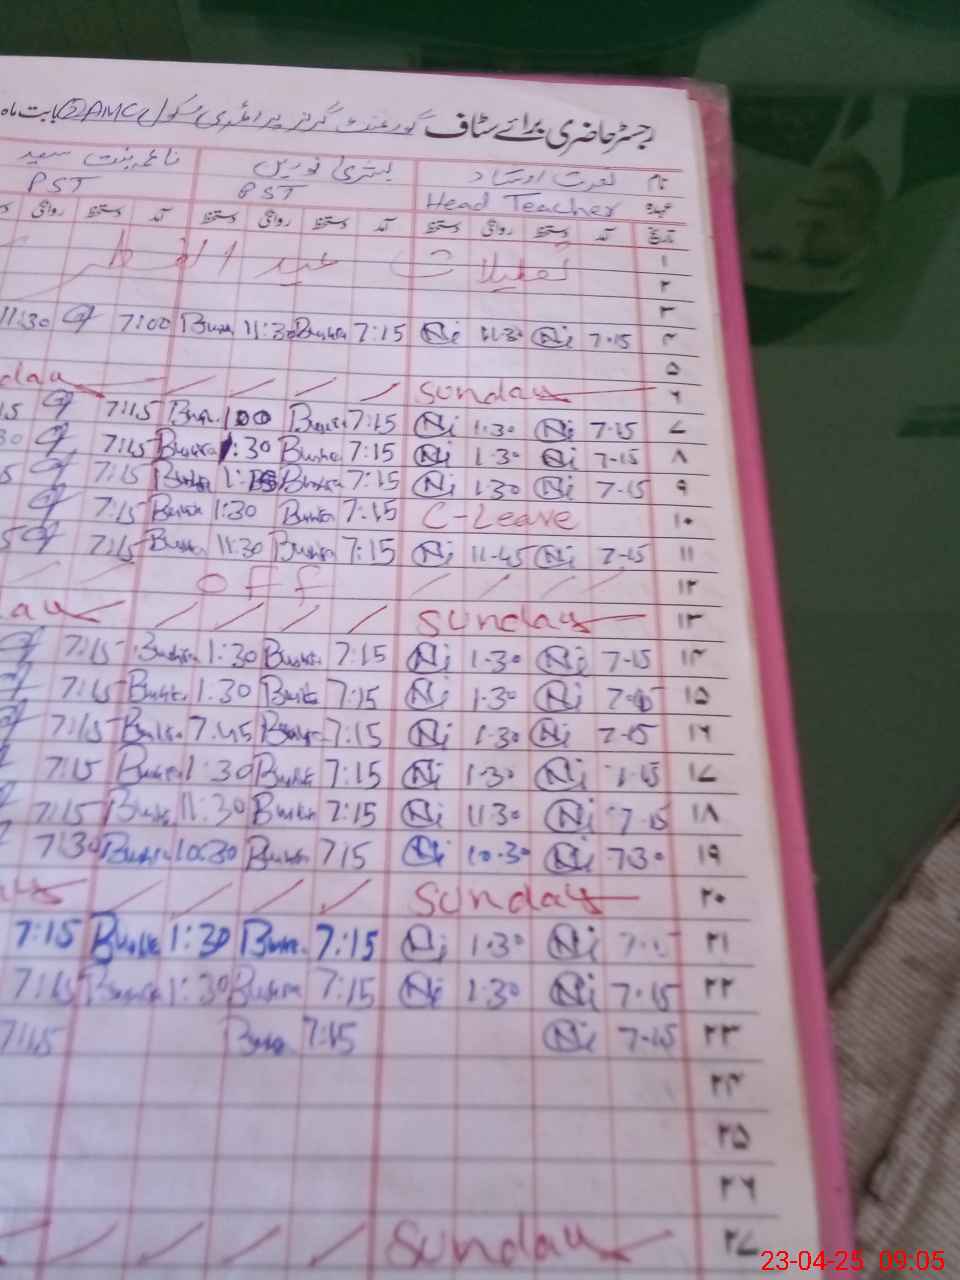 رجسٹر حاضری برائے سٹاف گورنمنٹ گرلز پرائمری سکول 2AMC بابت ماہ
نام نصرت ارشاد بشریٰ نورین بنت سعید
عہدہ Head Teacher PST PST
تاریخ آمد دستخط روانگی دستخط آمد دستخط روانگی دستخط آمد دستخط روانگی
۱ تعطیلات عید الفطر
۲
۳
۴ 7.15 Ni 11.30 Ni 7:15 Bushra 11:30 Bushra 7:00 11:30
۵
۶ Sunday
۷ 7-15 Ni 1.30 Ni 7:15 Bushra 1:00 Bushra 7:15
۸ 7-15 Ni 1.30 Ni 7:15 Bushra 1:30 Bushra 7:15
۹ 7-15 Ni 1.30 Ni 7:15 Bushra Bushra 7:15
۱۰ C-Leave 7:15 Bushra 1:30 Bushra 7:15
۱۱ 7-15 Ni 11-45 Ni 7:15 Bushra 11:30 Bushra 7:15
۱۲ OFF
۱۳ Sunday
۱۴ 7-15 Ni 1.30 Ni 7:15 Bushra 1:30 Bushra 7:15
۱۵ Ni 1.30 Ni 7:15 Bushra 1.30 Bushra 7:15
۱۶ 7-15 Ni 1.30 Ni 7:15 Bushra 7.45 Bushra 7:15
۱۷ Ni 1.30 Ni 7:15 Bushra 1:30 Bushra 7:15
۱۸ 7-15 Ni 11.30 Ni 7:15 Bushra 11:30 Bushra 7:15
۱۹ 7.30 Ni 10.30 Ni 715 Bushra 10:30 Bushra 7:30
۲۰ Sunday
۲۱ Ni 1.30 Ni 7:15 Bushra 1:30 Bushra 7:15
۲۲ 7.15 Ni 1.30 Ni 7:15 Bushra 1:30 Bushra 7:15
۲۳ 7-15 Ni 7:15 Bushra 7:15
۲۴
۲۵
۲۶
۲۷ Sunday
23-04-25 09.05